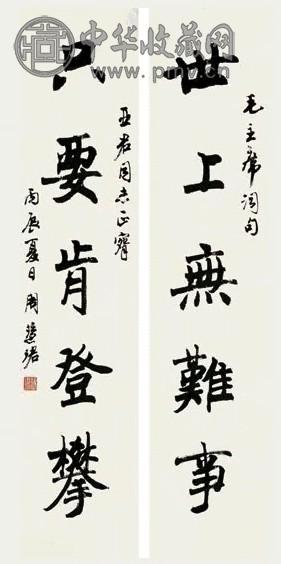 中华收藏网
www.pmv.cn
毛主席词句
世上無難事
亚君同志正腕
只要肯登攀
丙辰夏日周慧珺